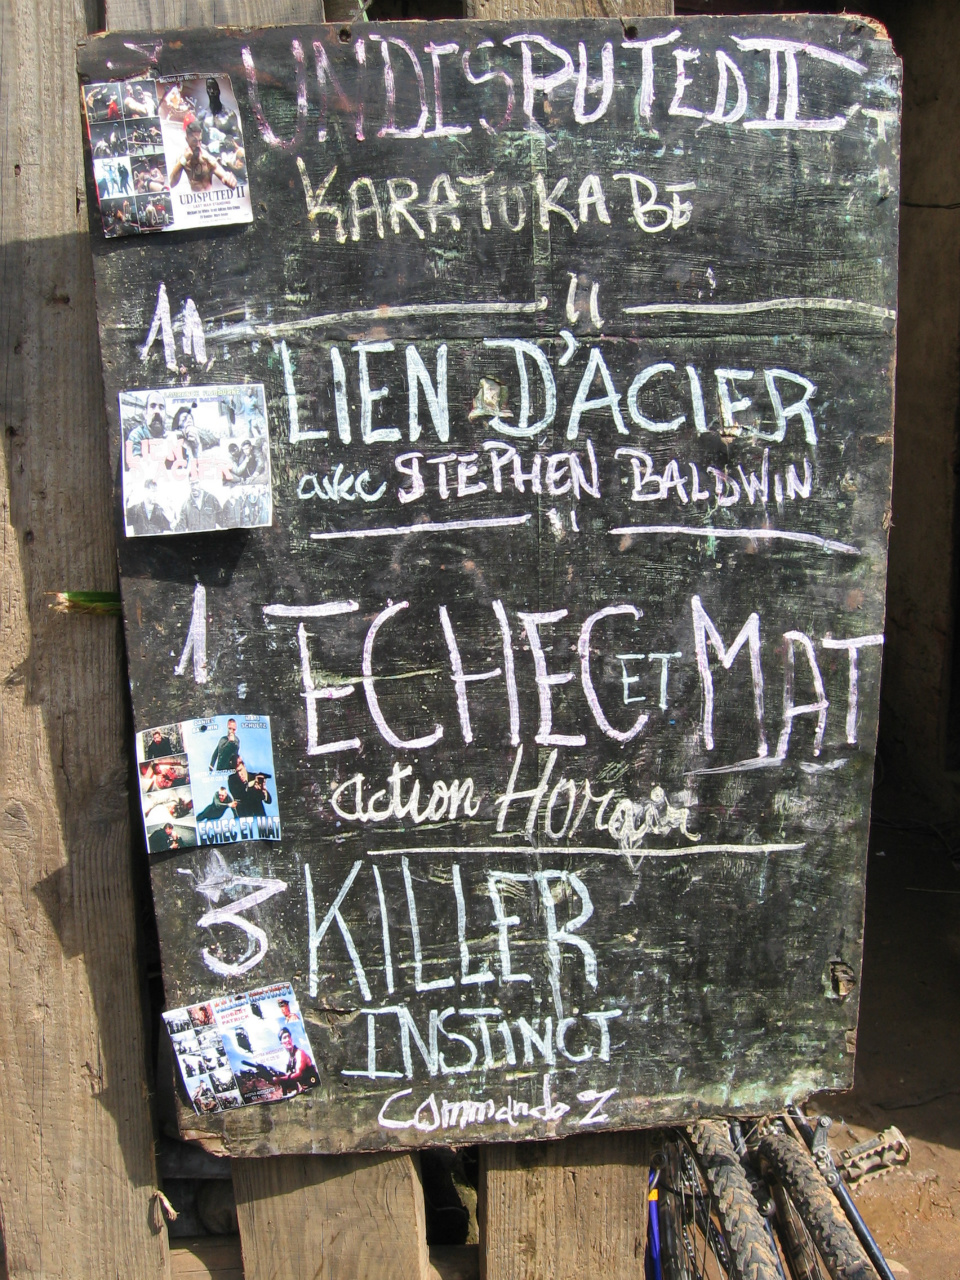 UNDISPUTED II
UDISPUTED II
KARATOKA BE
11
LIEN D'ACIER
avec STEPHEN BALDWIN
1
ECHEC ET MAT
ECHEC ET MAT
action Horair
3
KILLER
INSTINCT
ROBERT
PATRICK
Commando Z